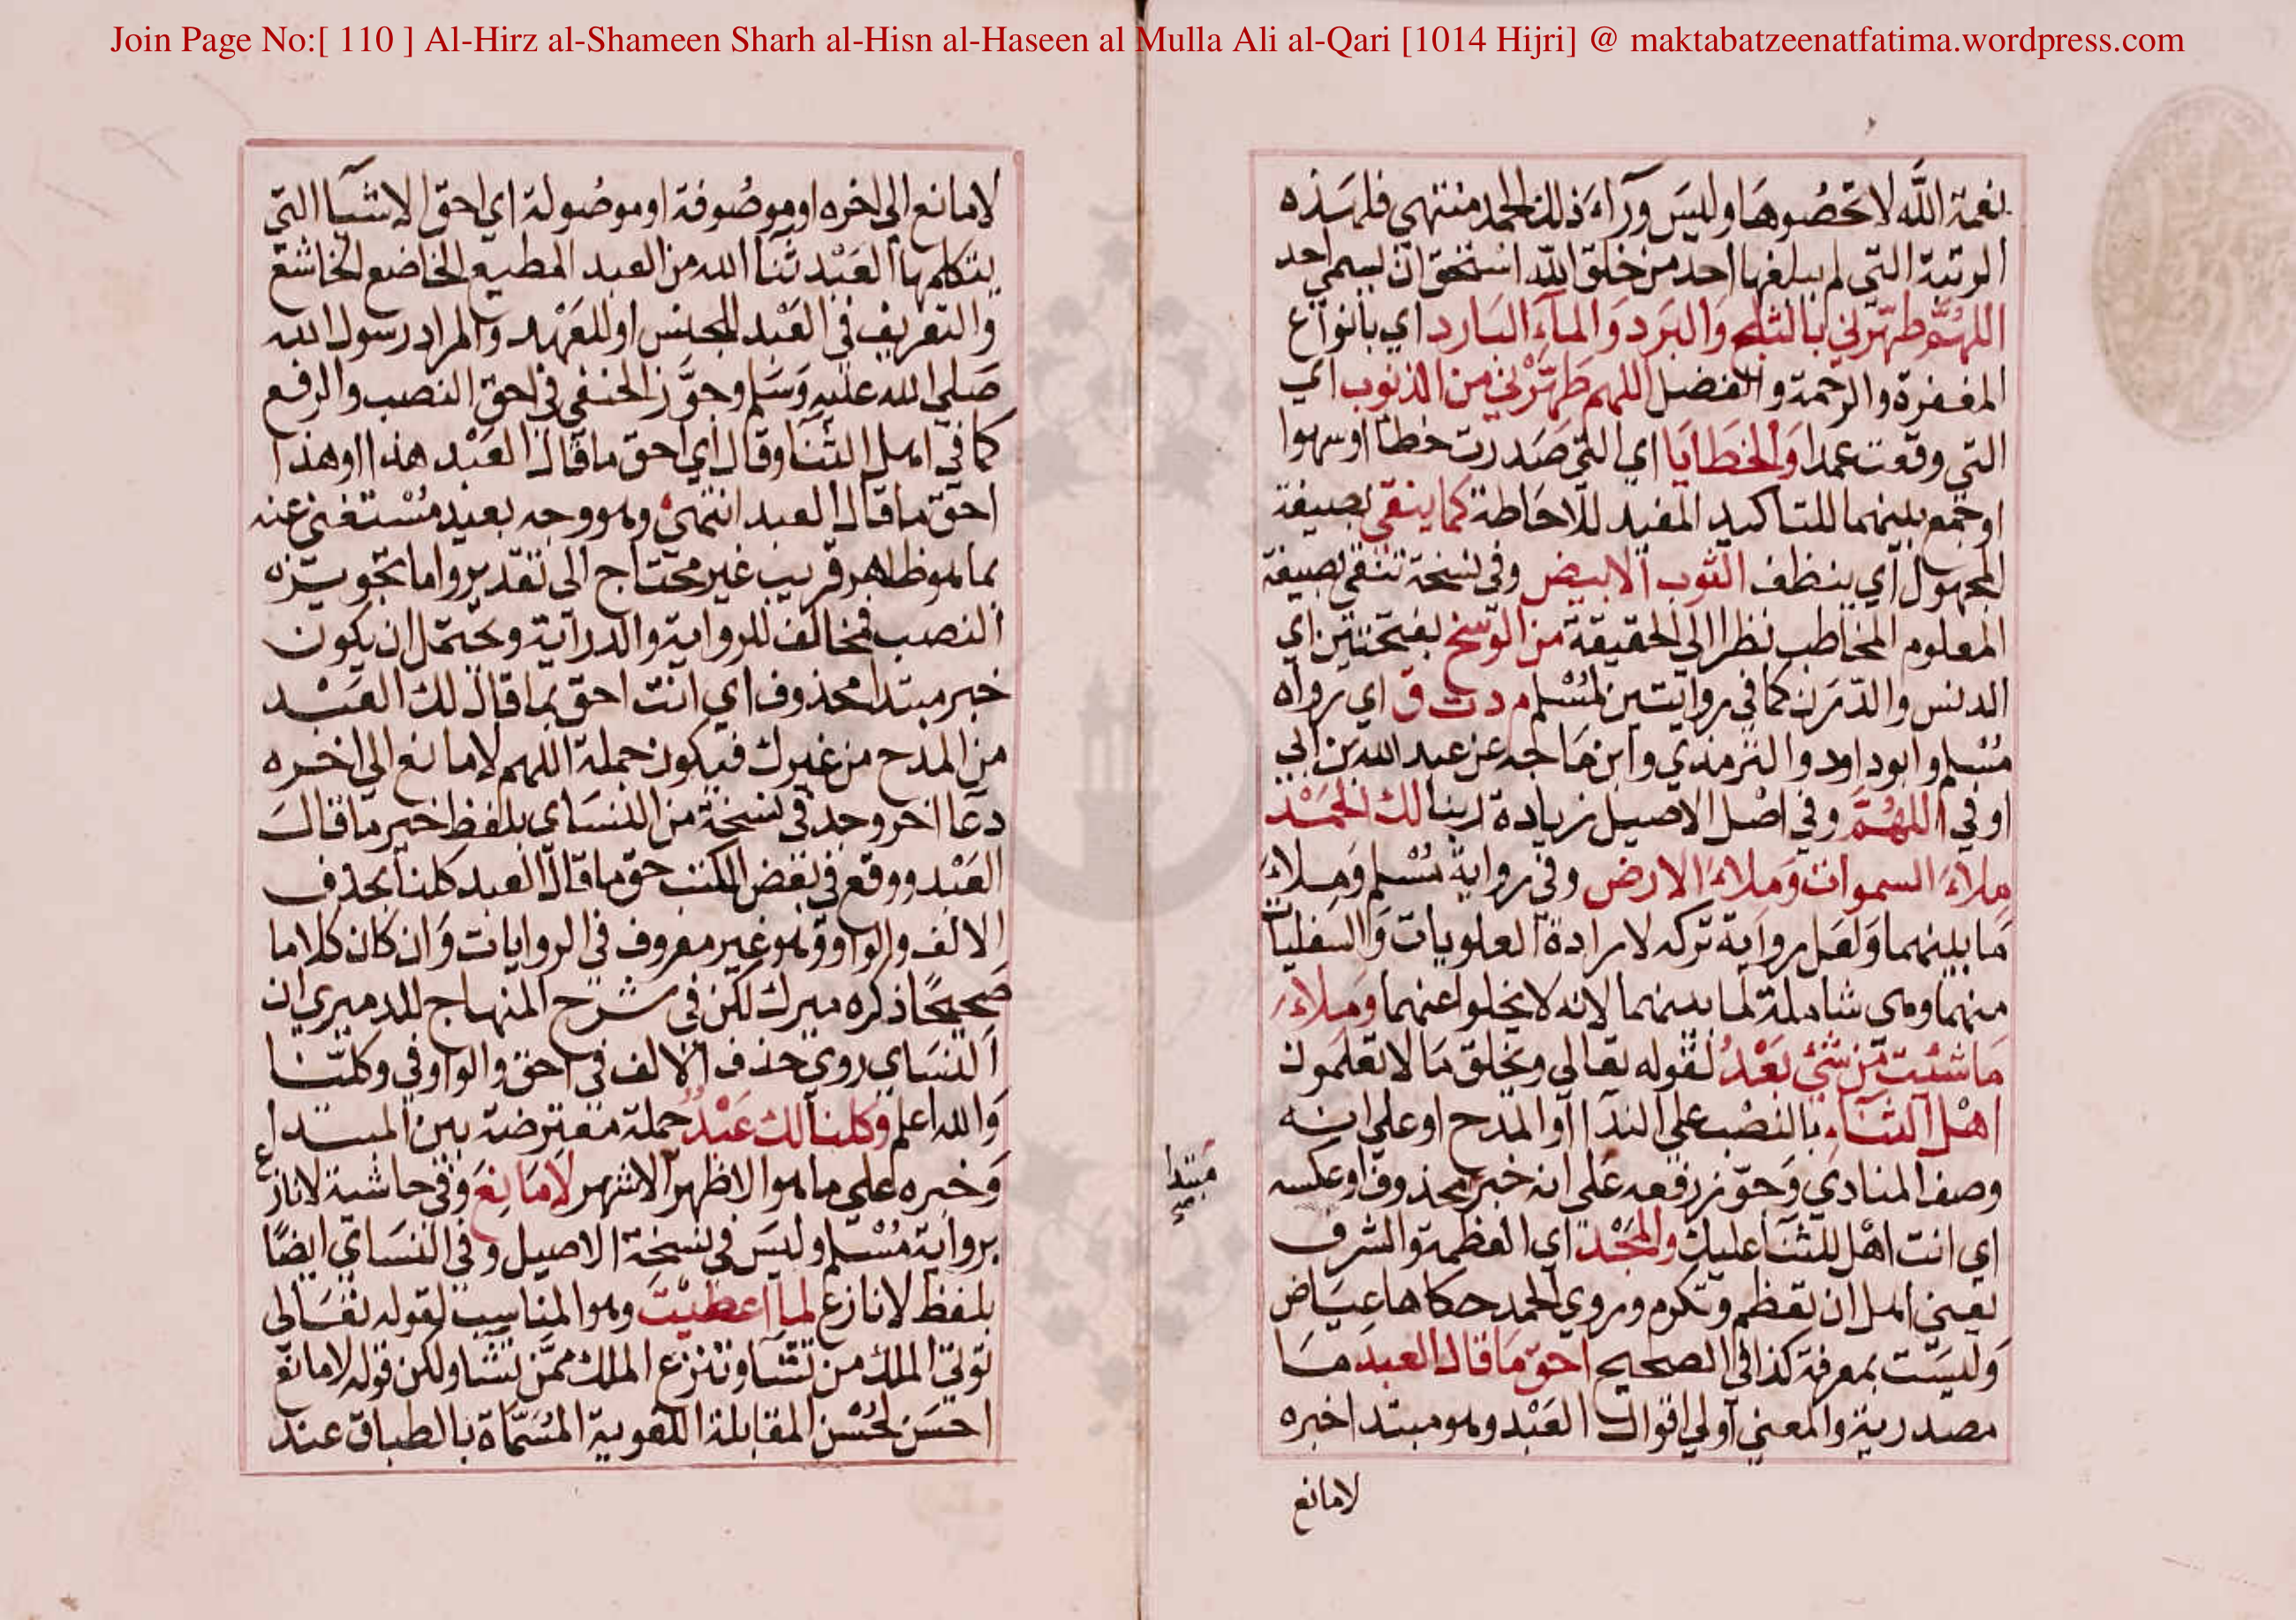 Join Page No:[ 110 ] Al-Hirz al-Shameen Sharh al-Hisn al-Haseen al Mulla Ali al-Qari [1014 Hijri] @ maktabatzeenatfatima.wordpress.com
نعمة الله لا تحصوها وليس ورآء ذلك الحمد منتهي فلهذه
الرتبة التي لم يبلغها احد من خلق الله استحق ان يسمي احمد
اللهم طهرني بالثلج والبرد والمآء البارد اي بانواع
المغفرة والرحمة والفضل اللهم طهرني من الذنوب اي
التي وقعت عمدا والخطايا اي التي صدرت خطأ او سهوا
او جمع بينهما للتاكيد المفيد للاحاطة كما ينقي بصيغة
المجهول اي ينظف الثوب الابيض وفي نسخة تنقي بصيغة
المعلوم المخاطب نظرا الي الحقيقة من الوسخ بفتحتين اي
الدنس والدرن كما في روايتين لمسلم م د ت ق اي رواه
مسلم وابو داود والترمذي وابن ماجه عن عبد الله بن ابي
اوفي اللهم وفي اصل الاصيل زيادة ربنا لك الحمد
ملاء السموات وملاء الارض وفي رواية مسلم وملاء
ما بينهما ولعل رواية تركه لارادة العلويات والسفليات
منهما وهي شاملة لما بينهما لانه لا يخلوا عنهما وملاء
ما شئت من شئ بعد لقوله تعالي ويخلق ما لا تعلمون
اهل الثناء بالنصب علي الندا او المدح او علي انه
وصف المنادي وجوز رفعه علي انه خبر محذوف او عكسه
مبتدا
اي انت اهل للثنا عليك والمجد اي العظمة والشرف
يعني اهل ان تعظم وتكرم وروي الحمد حكاها عياض
وليست بمعرفة كذا في الصحيح احق ما قال العبد ما
مصدرية والمعني اولي اقوال العبد وهو مبتدا خبره
لا مانع
لا مانع الي اخره او موصوفة او موصولة اي احق الاشيا التي
يتكلم بها العبد ثنا الله من العبد المطيع الخاضع الخاشع
والتعريف في العبد للجنس او للعهد والمراد رسول الله
صلي الله عليه وسلم وجوز الحنفي في احق النصب والرفع
كما في اهل الثنا وقال اي احق ما قال العبد هذا او هذا
احق ما قال العبد انتهي وهو وجه بعيد مستغني عنه
بما هو ظاهر قريب غير محتاج الي تقدير واما تجويزه
النصب فمخالف للرواية والدراية ويحتمل ان يكون
خبر مبتدا محذوف اي انت احق بما قال لك العبد
من المدح من غيرك فيكون جملة اللهم لا مانع الي اخره
دعا اخر وجد في نسخة من النساي بلفظ خير ما قال
العبد ووقع في بعض الكتب حق ما قال العبد كلنا بحذف
الالف والواو وهو غير معروف في الروايات وان كان كلاما
صحيحا ذكره ميرك لكن في شرح المنهاج للدميري ان
النساي روي حذف الالف في احق والواو في وكلنا
والله اعلم وكلنا لك عبد جملة معترضة بين المبتدا
وخبره علي ما هو الاظهر الاشهر لا مانع وفي حاشية لا نازع
برواية مسلم وليس في نسخة الاصيل وفي النساي ايضا
بلفظ لا نازع لما اعطيت وهو المناسب لقوله تعالي
توتي الملك من تشا وتنزع الملك ممن تشا ولكن قوله لا مانع
احسن لحسن المقابلة اللغوية المسماة بالطباق عند